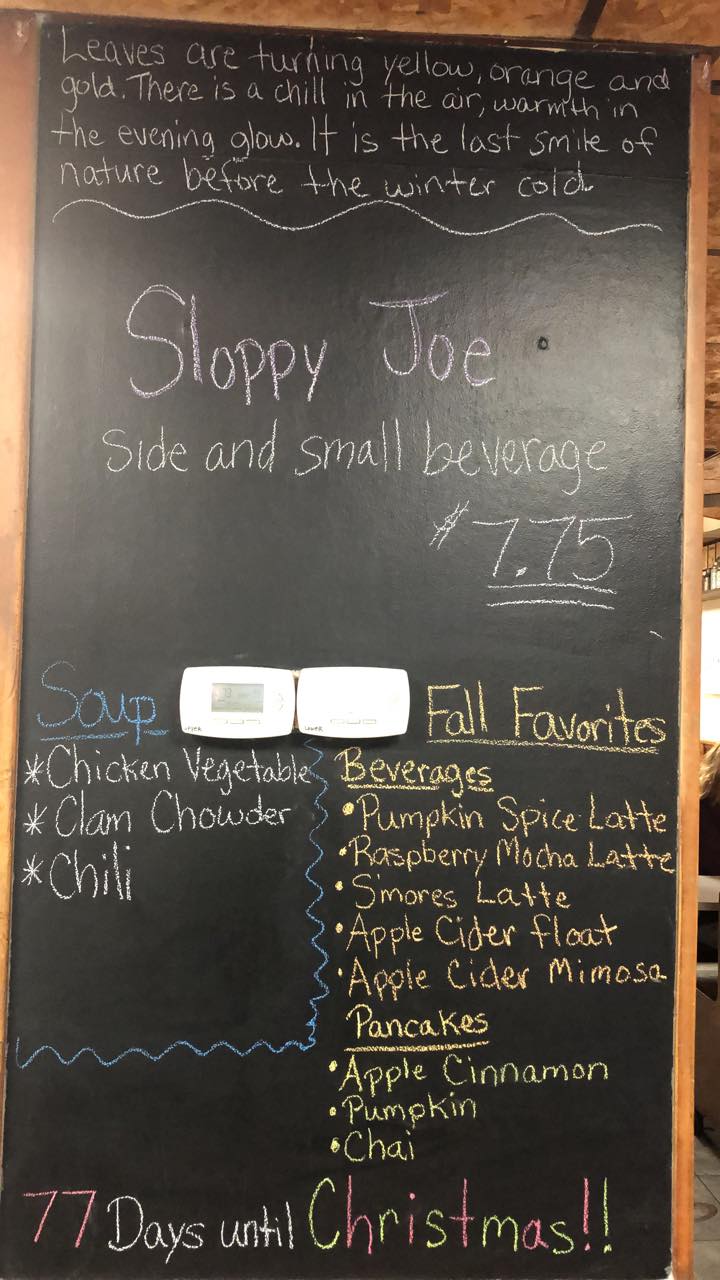 Leaves are turning yellow, orange and
gold. There is a chill in the air, warmth in
the evening glow. It is the last smile of
nature before the winter cold.
Sloppy Joe
Side and small beverage
$7.75
Soup
*Chicken Vegetable
*Clam Chowder
*Chili
UPPER
LOWER
Fall Favorites
Beverages
•Pumpkin Spice Latte
•Raspberry Mocha Latte
•S'mores Latte
•Apple Cider float
•Apple Cider Mimosa
Pancakes
•Apple Cinnamon
•Pumpkin
•Chai
77 Days until Christmas!!